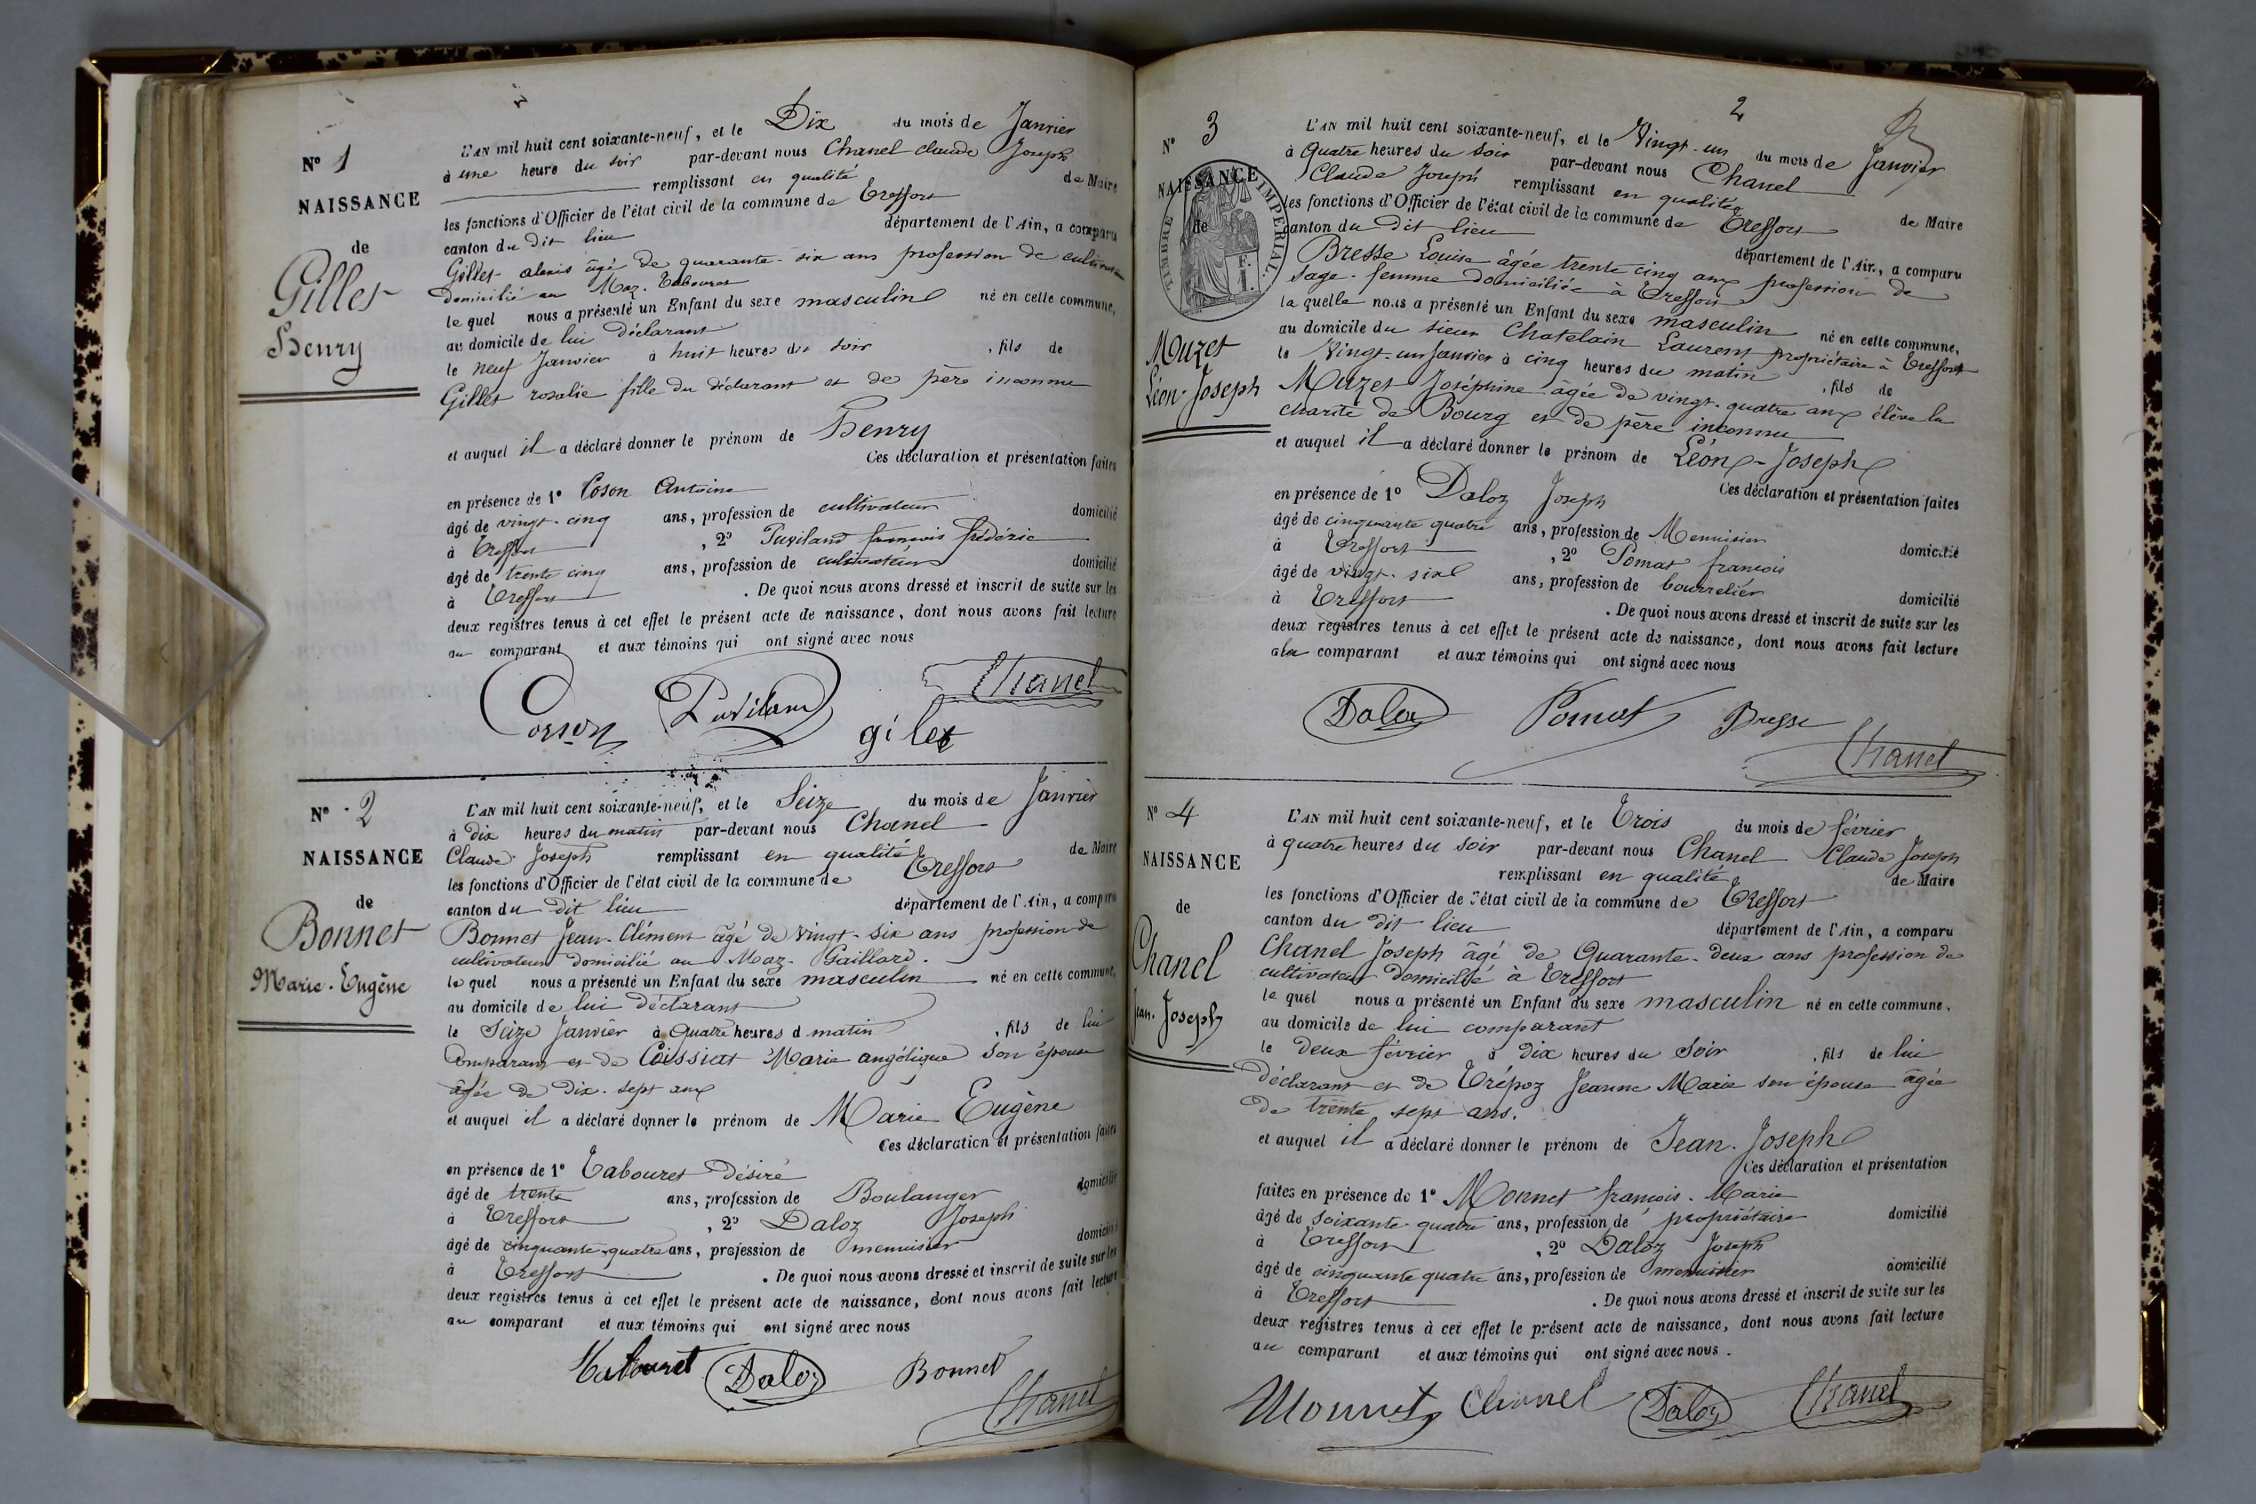 Nº 1
NAISSANCE
de
Gillet
Henry
L'AN mil huit cent soixante-neuf, et le Dix du mois de Janvier
à une heure du soir par-devant nous Chanel Claude Joseph
remplissant en qualité de Maire
les fonctions d'Officier de l'état civil de la commune de Treffort
canton du dit lieu département de l'Ain, a comparu
Gillet alexis âgé de quarante-six ans profession de cultivateur
domicilié au Maz-Tabouret
le quel nous a présenté un Enfant du sexe masculin né en cette commune,
au domicile de lui déclarant
le neuf Janvier à huit heures du soir , fils de
Gillet rosalie fille du déclarant et de père inconnu
et auquel il a déclaré donner le prénom de Henry
Ces déclaration et présentation faites
en présence de 1º Antoine
âgé de vingt-cinq ans, profession de cultivateur domicilié
à Treffort , 2º Puvilland françois frédéric
âgé de trente cinq ans, profession de cultivateur domicilié
à Treffort . De quoi nous avons dressé et inscrit de suite sur les
deux registres tenus à cet effet le présent acte de naissance, dont nous avons fait lecture
au comparant et aux témoins qui ont signé avec nous
Chanel
Nº 2
NAISSANCE
de
Bonnet
Marie-Eugène
L'AN mil huit cent soixante-neuf, et le Seize du mois de Janvier
à Dix heures du matin par-devant nous Chanel
Claude Joseph remplissant en qualité de Maire
les fonctions d'Officier de l'état civil de la commune de Treffort
canton du dit lieu département de l'Ain, a comparu
Bonnet Jean-Clément âgé de vingt-six ans profession de
cultivateur domicilié au Maz-Gaillard.
le quel nous a présenté un Enfant du sexe masculin né en cette commune,
au domicile de lui déclarant
le Seize Janvier à Quatre heures d matin , fils de lui
comparant et de Coissiat Marie angélique son épouse
âgée de dix-sept ans
et auquel il a déclaré donner le prénom de Marie Eugène
Ces déclaration et présentation faites
en présence de 1º Tabouret Désiré
âgé de trente ans, profession de Boulanger domicilié
à Treffort , 2º Daloz Joseph
âgé de cinquante-quatre ans, profession de menuisier domicilié
à Treffort . De quoi nous avons dressé et inscrit de suite sur les
deux registres tenus à cet effet le présent acte de naissance, dont nous avons fait lecture
au comparant et aux témoins qui ont signé avec nous
Tabouret Daloz Bonnet
Chanel
2
Nº 3
NAISSANCE
de
TIMBRE IMPERIAL
F.
I.
Muzet
Léon-Joseph
L'AN mil huit cent soixante-neuf, et le Vingt-un du mois de Janvier
à Quatre heures du soir par-devant nous Chanel
Claude Joseph remplissant en qualité de Maire
les fonctions d'Officier de l'état civil de la commune de Treffort
canton du dit lieu département de l'Ain, a comparu
Bresse Louise âgée trente cinq ans profession de
sage-femme domiciliée à Treffort
la quelle nous a présenté un Enfant du sexe masculin né en cette commune,
au domicile du sieur Chatelain Laurent propriétaire à Treffort
le Vingt-un Janvier à cinq heures du matin , fils de
Muzet Joséphine âgée de vingt-quatre ans élève la
charité de Bourg et de père inconnu
et auquel il a déclaré donner le prénom de Léon-Joseph
Ces déclaration et présentation faites
en présence de 1º Daloz Joseph
âgé de cinquante quatre ans, profession de Menuisier domicilié
à Treffort , 2º Pomat françois
âgé de vingt-six ans, profession de bourrelier domicilié
à Treffort . De quoi nous avons dressé et inscrit de suite sur les
deux registres tenus à cet effet le présent acte de naissance, dont nous avons fait lecture
a la comparant et aux témoins qui ont signé avec nous
Daloz Pomat Bresse
Chanel
Nº 4
NAISSANCE
de
Chanel
Jean-Joseph
L'AN mil huit cent soixante-neuf, et le Trois du mois de février
à quatre heures du soir par-devant nous Chanel Claude Joseph
remplissant en qualité de Maire
les fonctions d'Officier de l'état civil de la commune de Treffort
canton du dit lieu département de l'Ain, a comparu
Chanel Joseph âgé de Quarante-deux ans profession de
cultivateur domicilié à Treffort
le quel nous a présenté un Enfant du sexe masculin né en cette commune,
au domicile de lui comparant
le Deux février à dix heures du soir , fils de lui
déclarant et de Trépoz Jeanne Marie son épouse âgée
de trente sept ans.
et auquel il a déclaré donner le prénom de Jean-Joseph
Ces déclaration et présentation
faites en présence de 1º Monnet françois-Marie
âgé de soixante quatre ans, profession de propriétaire domicilié
à Treffort , 2º Daloz Joseph
âgé de cinquante quatre ans, profession de menuisier domicilié
à Treffort . De quoi nous avons dressé et inscrit de suite sur les
deux registres tenus à cet effet le présent acte de naissance, dont nous avons fait lecture
au comparant et aux témoins qui ont signé avec nous .
Monnet Chanel Daloz Chanel